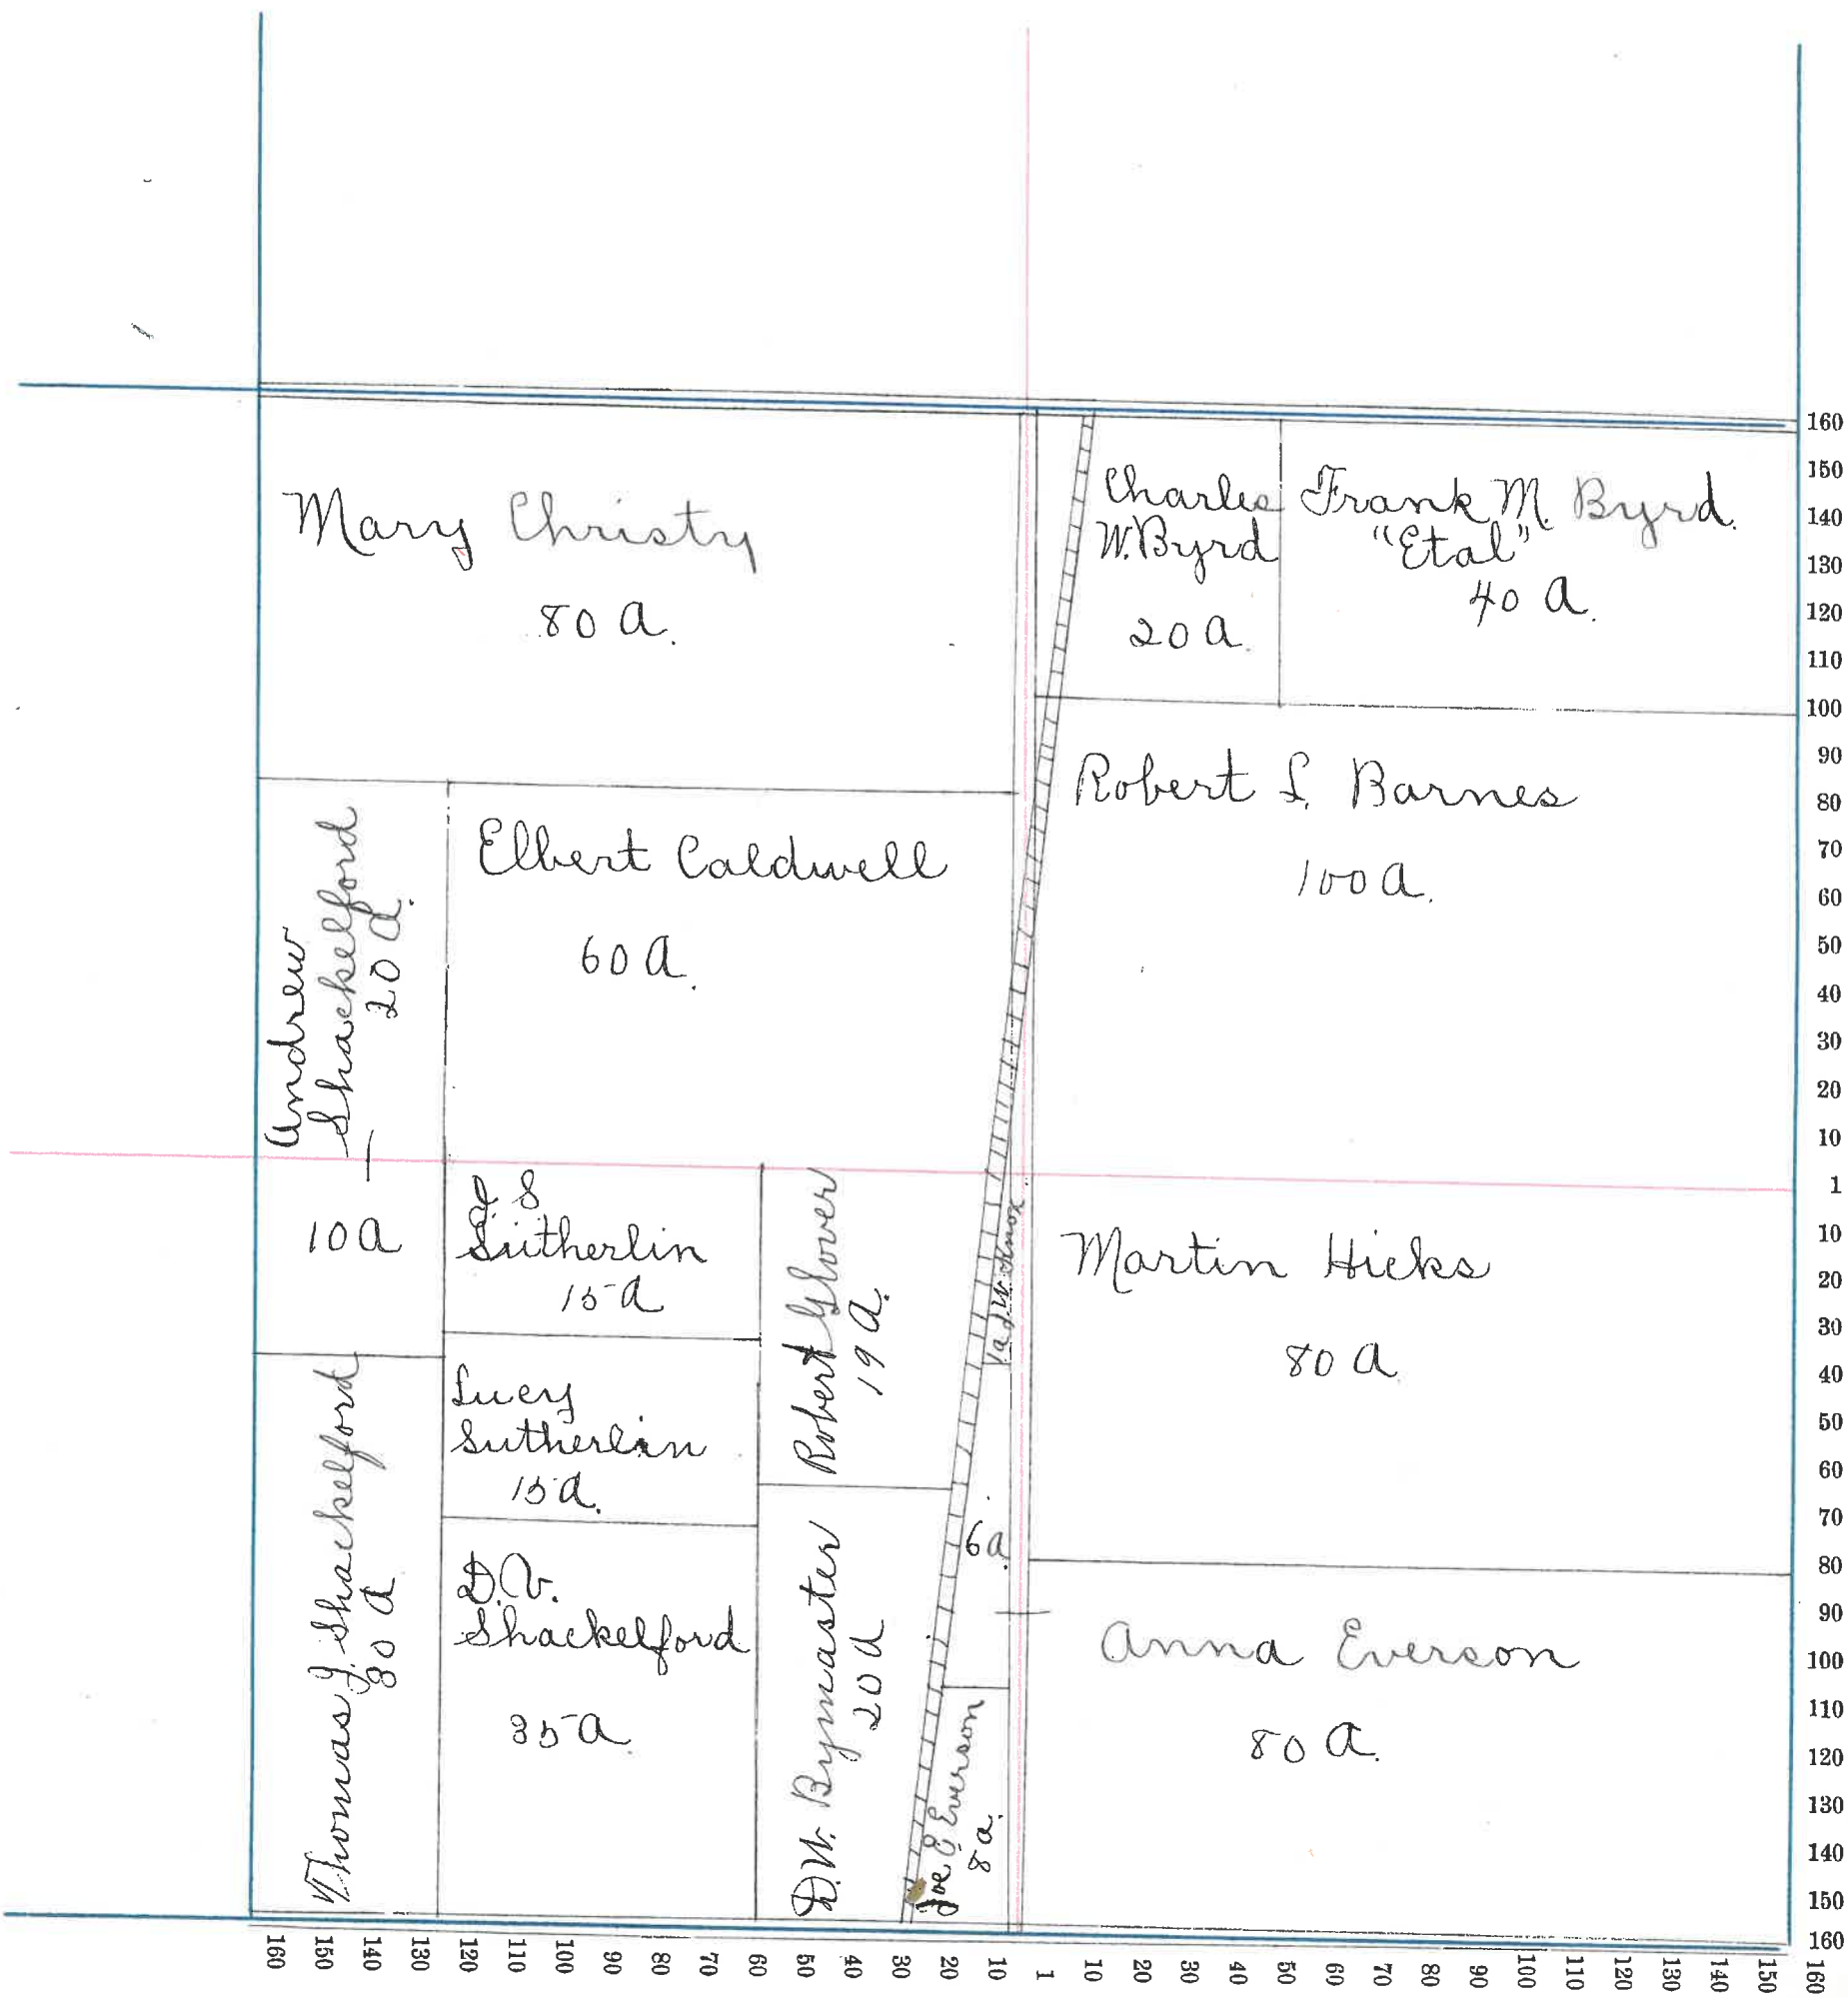 Mary Christy
80 a.
Charles
W. Byrd
20 a.
Frank M. Byrd.
"Etal"
40 a.
Robert L. Barnes
100 a.
Andrew
Shackelford
20 a.
10 a
Elbert Caldwell
60 a.
S
Sutherlin
15 a
Lucy
Sutherlin
15 a.
D.V.
Shackelford
35 a
Thomas J. Shackelford
30 a
Robert Glover
19 a.
D.W. Bymaster
20 a
1a J W. Knox
6a
Joe E Everson
8 a.
Martin Hicks
80 a
Anna Everson
80 a.
160
150
140
130
120
110
100
90
80
70
60
50
40
30
20
10
1
10
20
30
40
50
60
70
80
90
100
110
120
130
140
150
160
160 150 140 130 120 110 100 90 80 70 60 50 40 30 20 10 1 10 20 30 40 50 60 70 80 90 100 110 120 130 140 150 160